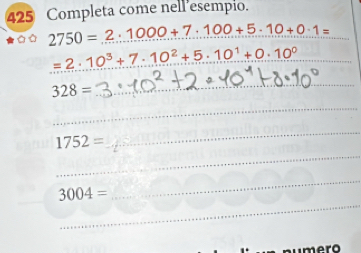 425 Completa come nell'esempio.
2750 = 2 · 1000 + 7 · 100 + 5 · 10 + 0 · 1 =
= 2 · 10³ + 7 · 10² + 5 · 10¹ + 0 · 10⁰
328 = 3 · 10² + 2 · 10¹ + 8 · 10⁰
1752 =
3004 =
numero